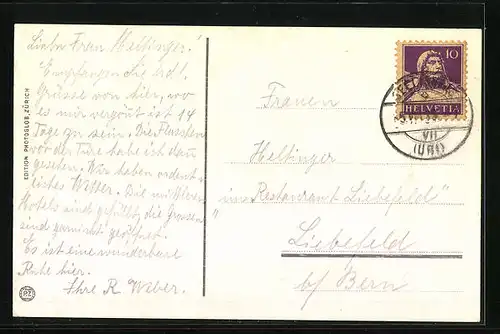 Liebe Frau Heltinger!
Empfangen Sie erl.
Grüsse von hier, wo
es mir vergönt ist 14
Tage zu sein. Die Flaschen
vor der Türe habe ich dan
gesehen. Wir haben ordent-
liches Wetter. Die mittleren
Hotels sind gefüllt, die Grossen
sind garnicht geöffnet.
Es ist eine wunderbare
Ruhe hier.
Ihre R. Weber.
EDITION PHOTOGLOB ZÜRICH
PZ
10
HELVETIA
VII
(URI)
Frauen
Heltinger
im "Restaurant Liebefeld"
Liebefeld
b/ Bern